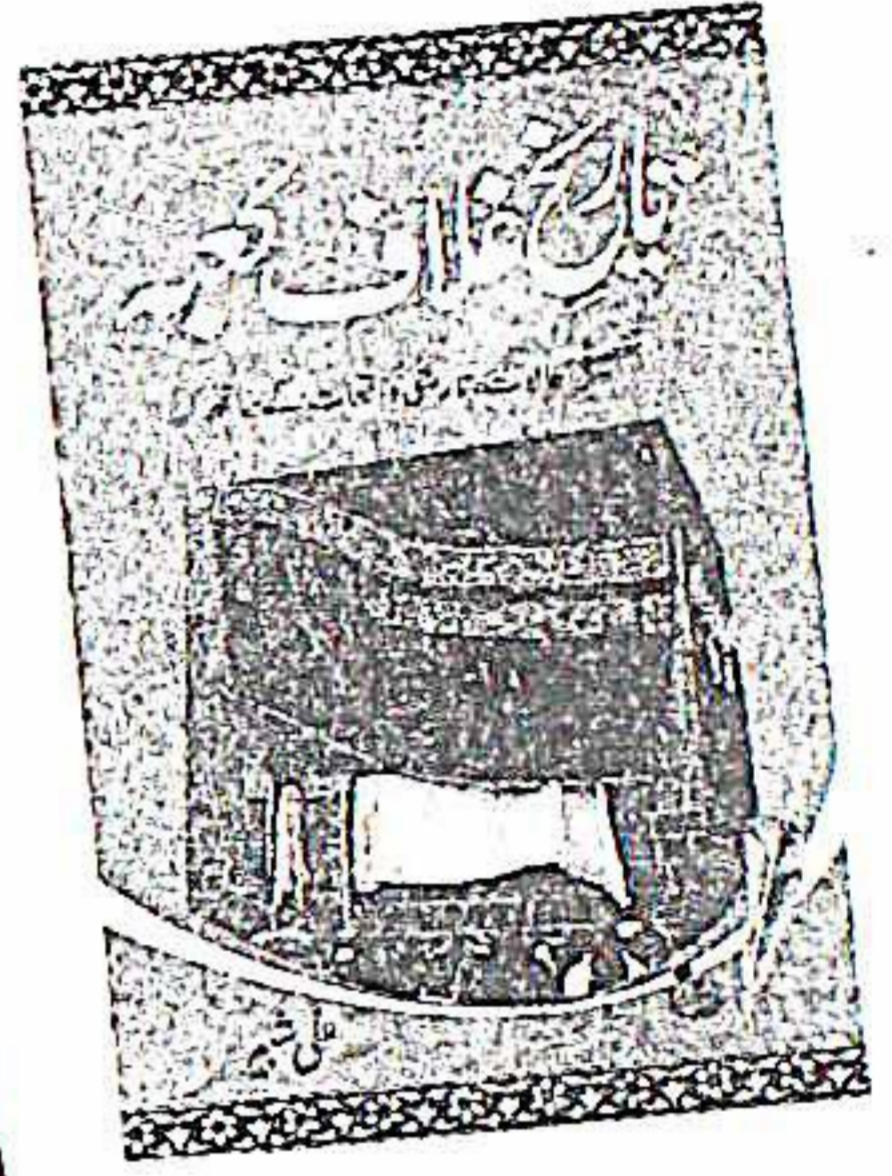 تاریخ غلاف کعبہ
حالات، تاریخی واقعات کے
علی شبیر